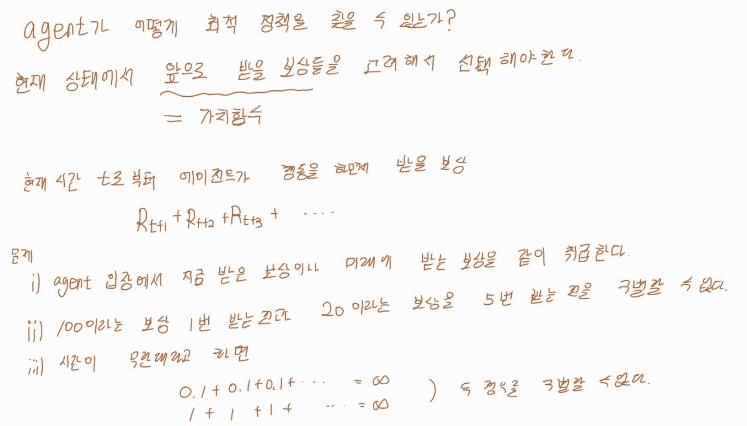 agent가 어떻게 최적 정책을 찾을 수 있는가?
현재 상태에서 앞으로 받을 보상들을 고려해서 선택해야한다.
= 가치함수
현재 시간 t로부터 에이전트가 행동을 하면서 받을 보상
Rt+1 + Rt+2 + Rt+3 + ....
문제
i) agent 입장에서 지금 받은 보상이나 미래에 받는 보상을 같이 취급한다.
ii) 100이라는 보상 1번 받는 것과 20이라는 보상을 5번 받는 것을 구별할 수 없다.
iii) 시간이 무한대라고 하면
0.1 + 0.1 + 0.1 + ... = ∞
1 + 1 + 1 + ... = ∞ ) 두 경우를 구별할 수 없다.